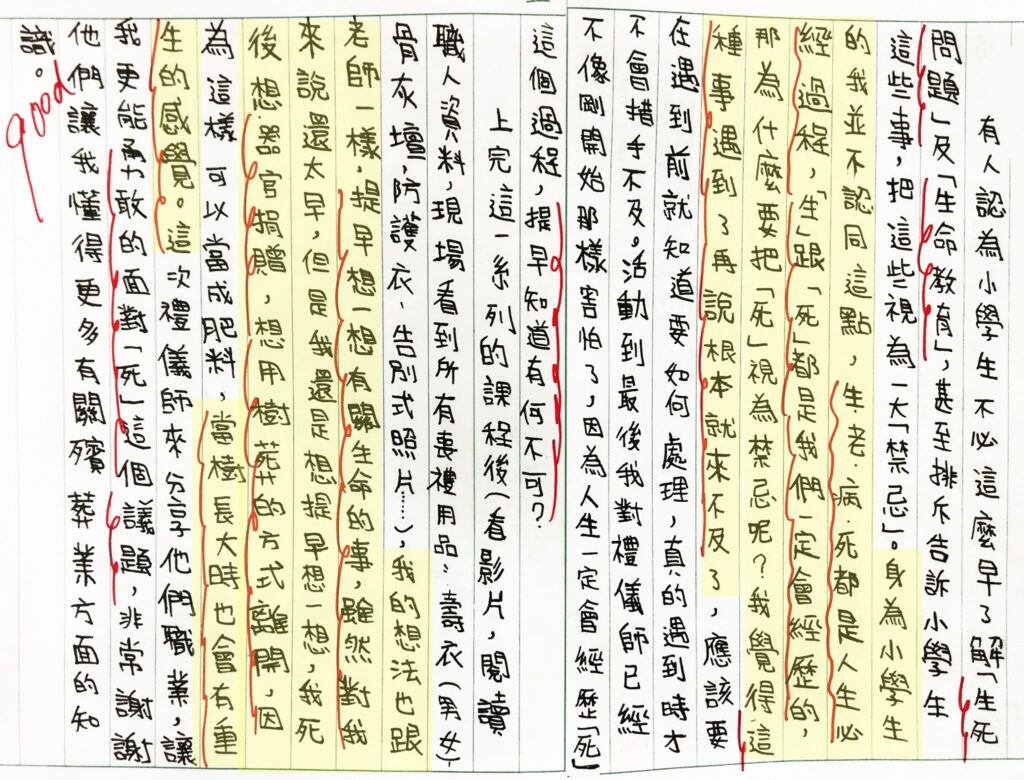 有人認為小學生不必這麼早了解「生死
問題」及「生命教育」，甚至排斥告訴小學生
這些事，把這些視為一大「禁忌」。身為小學生
的我並不認同這點，生.老.病.死都是人生必
經過程，「生」跟「死」都是我們一定會經歷的，
那為什麼要把「死」視為禁忌呢？我覺得這
種事遇到了再說根本就來不及了，應該要
在遇到前就知道要如何處理，真的遇到時才
不會措手不及。活動到最後我對禮儀師已經
不像剛開始那樣害怕了，因為人生一定會經歷「死」
這個過程，提早知道有何不可？
上完這一系列的課程後(看影片，閱讀
職人資料，現場看到所有喪禮用品、壽衣(男女)
骨灰壇，防護衣、告別式照片……)，我的想法也跟
老師一樣，提早想一想有關生命的事，雖然對我
來說還太早，但是我還是想提早想一想，我死
後想器官捐贈，想用樹葬的方式離開，因
為這樣可以當成肥料，當樹長大時也會有重
生的感覺。這次禮儀師來分享他們職業，讓
我更能勇敢的面對「死」這個議題，非常謝謝
他們讓我懂得更多有關殯葬業方面的知
識。
good